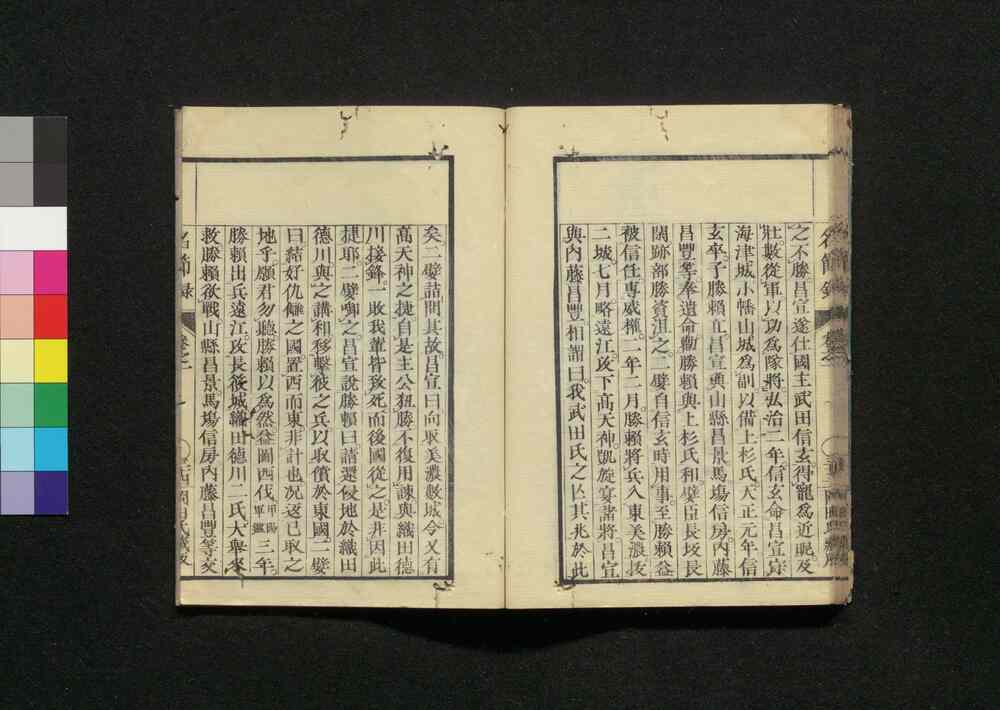 之不勝昌宣遂仕國主武田信玄得寵爲近昵及
壯數從軍以功爲隊將弘治二年信玄命昌宣守
海津城小幡山城爲副以備上杉氏天正元年信
玄卒子勝賴立昌宣與山縣昌景馬場信房內藤
昌豐等奉遺命勸勝賴與上杉氏和嬖臣長坂長
閑跡部勝資沮之二嬖自信玄時用事至勝賴益
被信任専威權二年二月勝賴將兵入東美濃拔
二城七月略遠江攻下髙天神凱旋宴諸將昌宣
與內藤昌豐相謂曰我武田氏之亾其兆於此
矣二嬖詰問其故昌宣曰向取美濃數城今又有
髙天神之捷自是主公狃勝不復用諫與織田德
川接鋒一敗我輩皆致死而後國從之是非因此
捷耶二嬖唧之昌宣說勝賴曰請還侵地於織田
德川與之講和移擊彼之兵以取償於東國二嬖
曰結好仇讎之國置西而東非計也况返已取之
地乎願君勿聽勝賴以爲然益圖西伐甲陽軍鑑三年
勝賴出兵遠江攻長篠城織田德川二氏大舉來
救勝賴欲戰山縣昌景馬場信房內藤昌豐等交
名節錄 卷之二